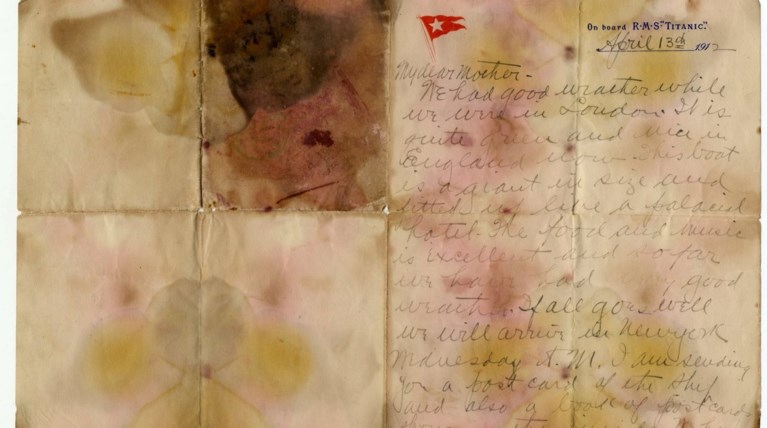 On board R·M·S "TITANIC."
April 13th 1912
My dear Mother-
We had good weather while
we were in London. It is
quite green and nice in
England now. This boat
is a giant in size and
fitted up like a palacial
hotel. The food and music
is excellent and so far
we have had very good
weather. If all goes well
we will arrive in New York
Wednesday A.M. I am sending
you a post card of the ship
and also a book of postcards